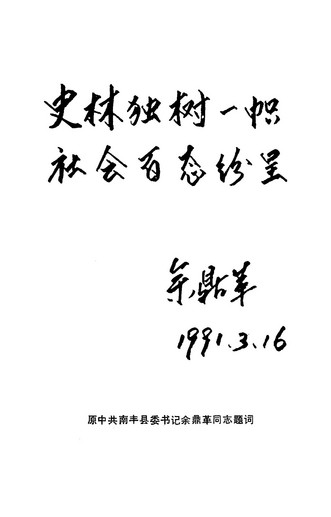 史林独树一帜
社会百态纷呈
余鼎革
1991.3.16
原中共南丰县委书记余鼎革同志题词